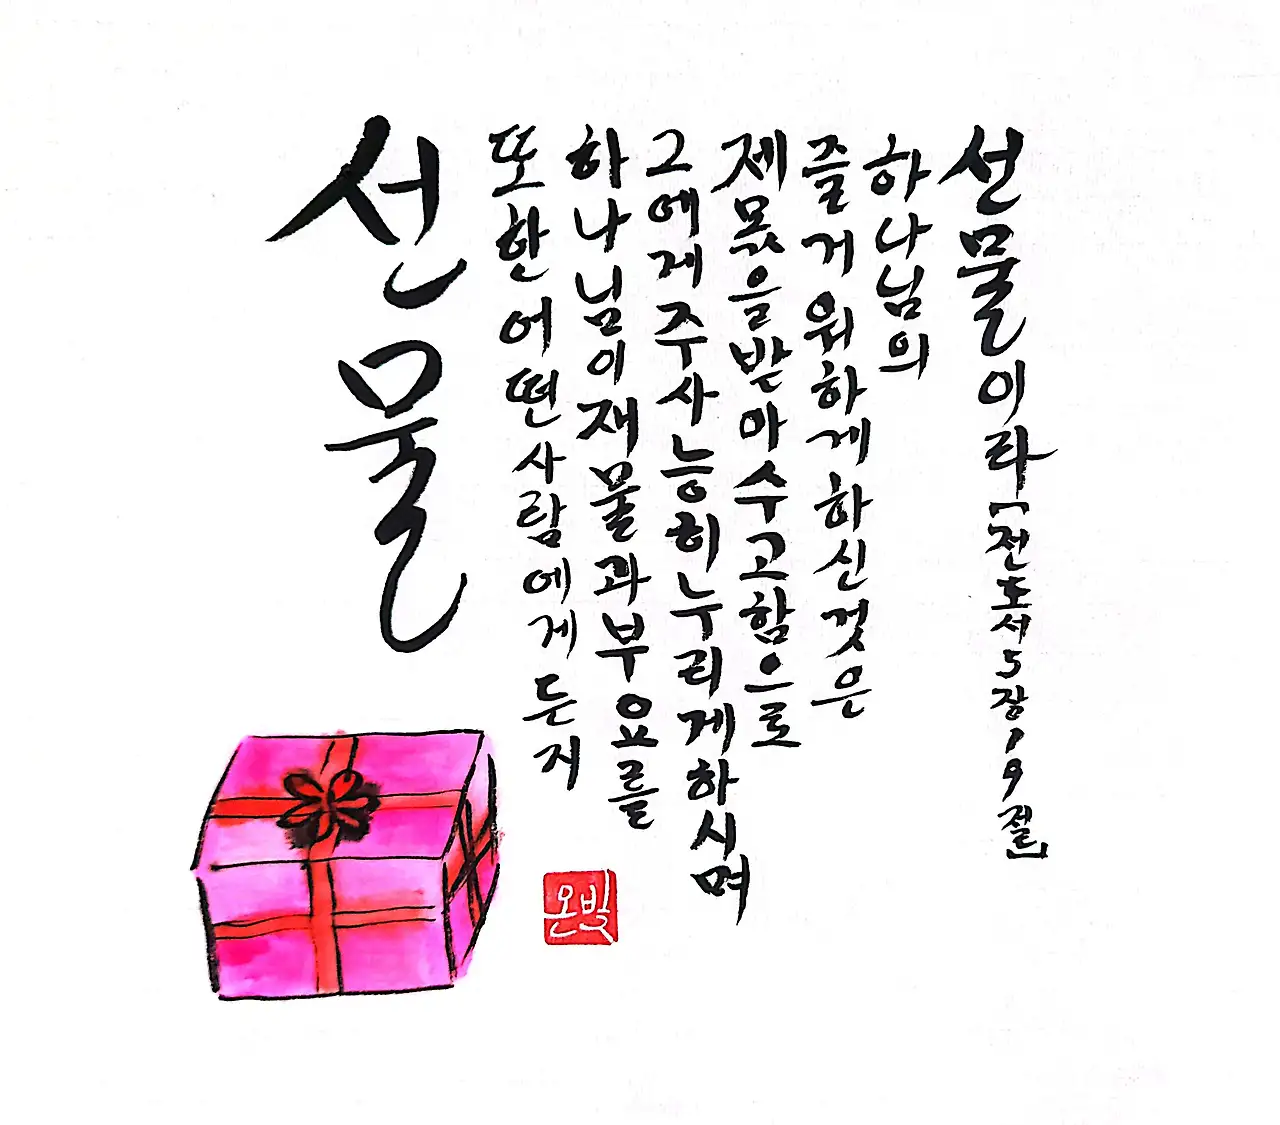 선물
또한어떤사람에게든지
하나님이재물과부요를
그에게주사능히누리게하시며
제몫을받아수고함으로
즐거워하게하신것은
하나님의
선물이라[전도서5장19절]
온빛